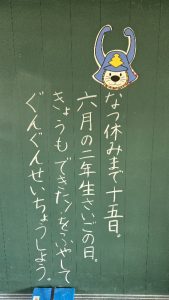 なつ休みまで十五日。
六月の二年生さいごの日。
きょうも「できた!」をふやして
ぐんぐんせいちょうしよう。